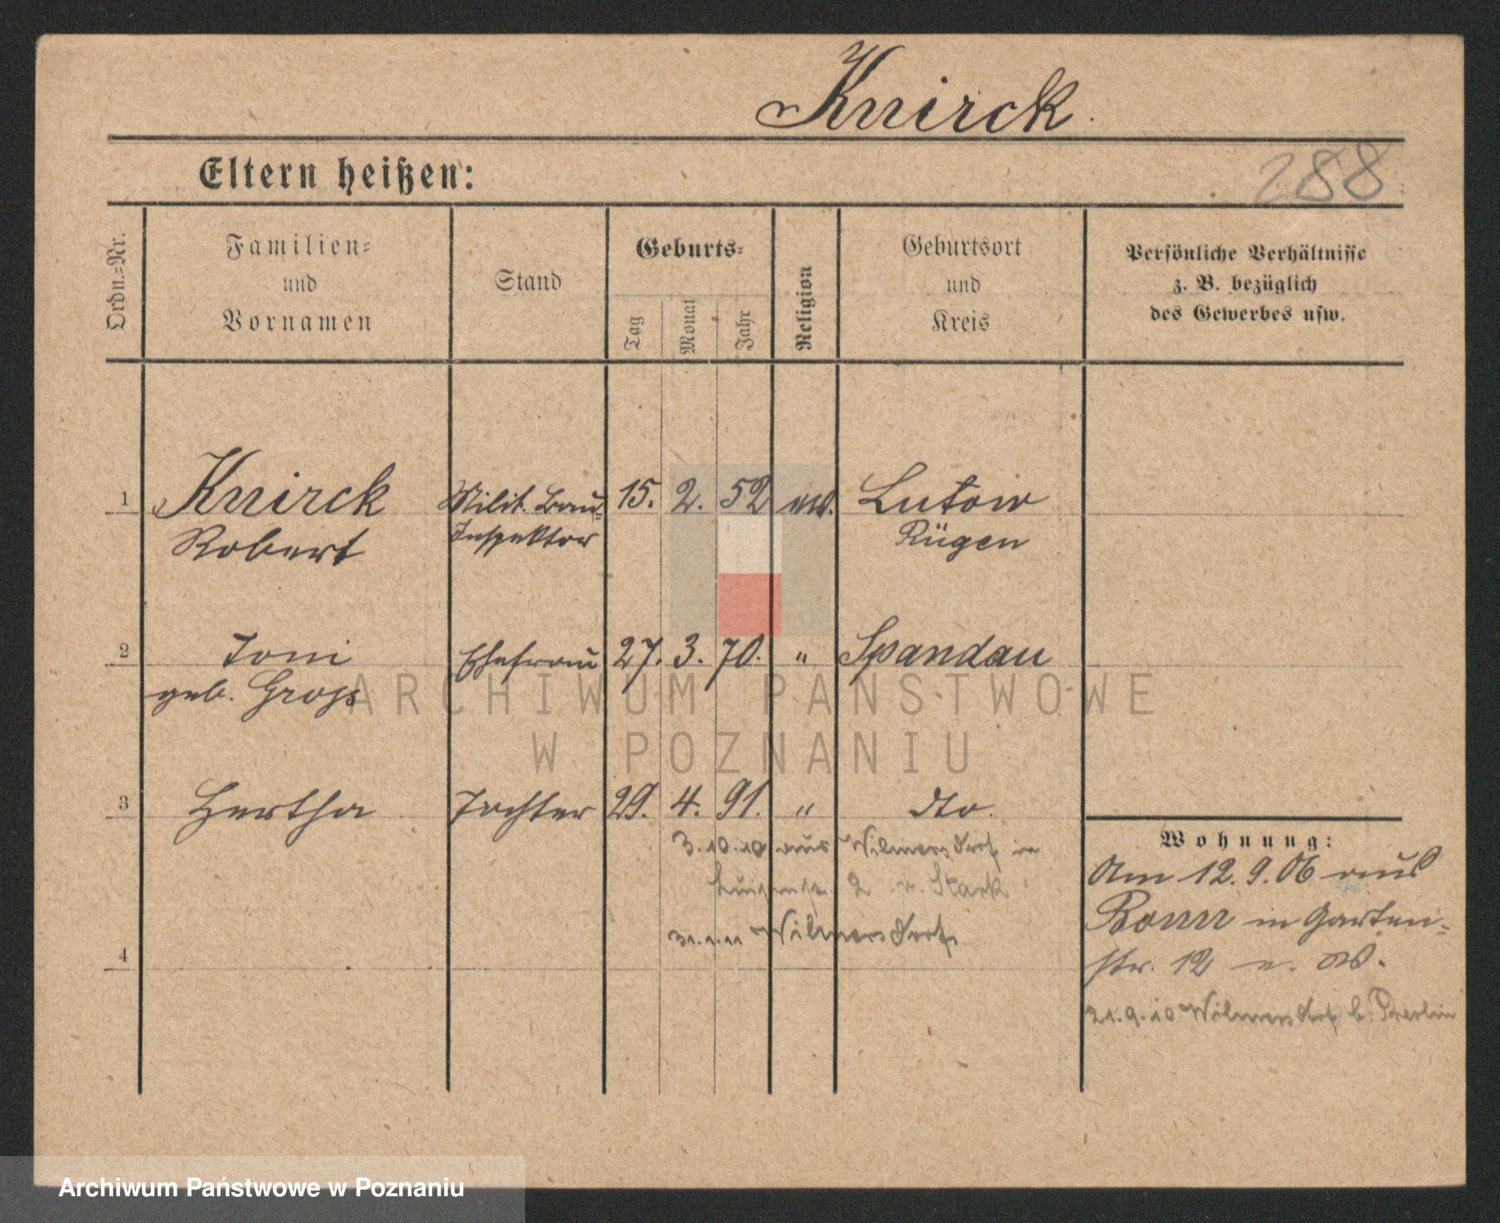 Knirck.
288
Eltern heißen:
Ordn.=Nr.
Familien=
und
Vornamen
Stand
Geburts=
Tag
Monat
Jahr
Religion
Geburtsort
und
Kreis
Persönliche Verhältnisse
z. B. bezüglich
des Gewerbes usw.
1 Knirck Milit. Bau= 15. 2. 52 ev. Lutow
Robert Inspektor Rügen
2 Toni Ehefrau 27. 3. 70. " Spandau
geb. Groß
3 Hertha Tochter 29. 4. 91. " dto.
3.10.10 aus Wilmersdorf in
2 Stark
31.1.11 Wilmersdorf
4
Wohnung:
Am 12.9.06 aus
Bonn in Garten=
str. 12 n. W.
21.9.10 Wilmersdorf b. Berlin
ARCHIWUM PAŃSTWOWE
W POZNANIU
Archiwum Państwowe w Poznaniu